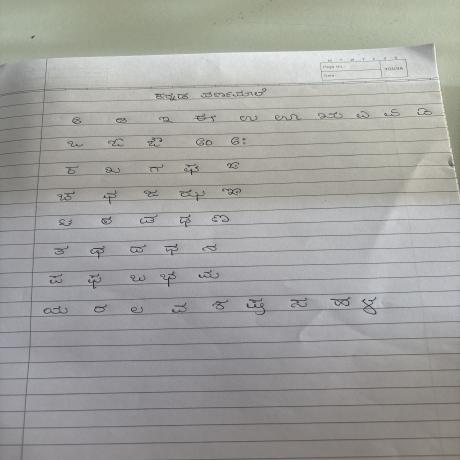 Page No.:
Date:
YOUVA
ಕನ್ನಡ ವರ್ಣಮಾಲೆ
ಅ ಆ ಇ ಈ ಉ ಊ ಋ ಎ ಏ ಐ
ಒ ಓ ಔ ಅಂ ಅಃ
ಕ ಖ ಗ ಘ ಙ
ಚ ಛ ಜ ಝ ಞ
ಟ ಠ ಡ ಢ ಣ
ತ ಥ ದ ಧ ನ
ಪ ಫ ಬ ಭ ಮ
ಯ ರ ಲ ವ ಶ ಷ ಸ ಹ ಳ